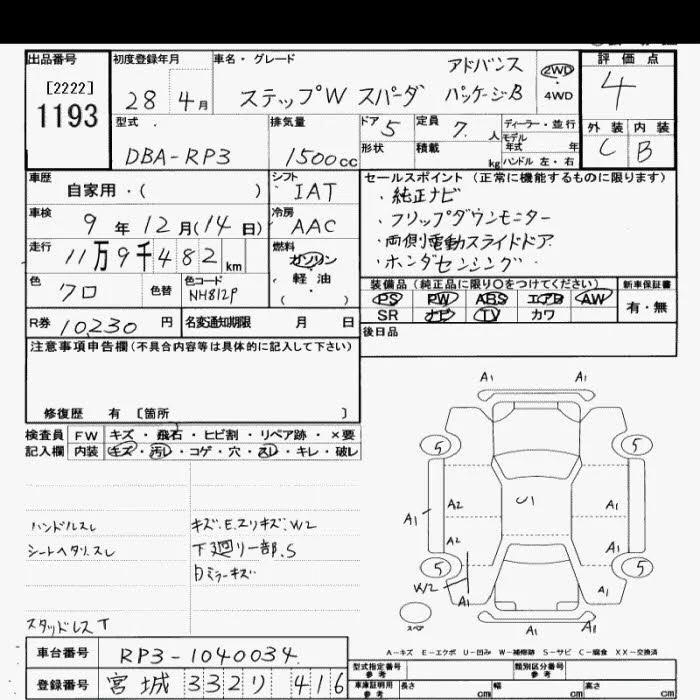 出品番号
[2222]
1193
初度登録年月
28 4月
車名・グレード
ステップW スパーダ アドバンスパッケージB
2WD
・
4WD
評価点
4
外装 内装
C B
型式
DBA-RP3
排気量
1500cc
ドア 5
形状
定員 7. 人
積載 kg
ディーラー・並行
モデル
年式 年
ハンドル 左・右
車歴
自家用・( )
シフト
IAT
車検
9年12月(14日)
冷房
AAC
走行
11万9千482km
燃料
ガソリン
・
軽油
・
( )
色
クロ
色替
色コード
NH812P
R券 10,230 円
名変通知期限 月 日
セールスポイント (正常に機能するものに限ります)
・純正ナビ
・フリップダウンモニター
・両側電動スライドドア
・ホンダセンシング
装備品(純正品に限り○をつけてください)
PS PW ABS エアB AW
SR ナビ TV カワ
新車保証書
有・無
後日品
注意事項申告欄(不具合内容等は具体的に記入して下さい)
修復歴 有 [箇所 ]
検査員
記入欄
FW キズ・飛石・ヒビ割・リペア跡・×要
内装 キズ・汚レ・コゲ・穴・スレ・キレ・破レ
ハンドルスレ
シートヘタリ.スレ
スタッドレスT
キズ.E.スリキズ.W2
下廻り一部.S
ミラーキズ
A1 A1
5 5
A2 U1 A1
A1
A2 A1
5 5
W2
A1 A1
A1 A1
スペア
A-キズ E-エクボ U-凹み W-補修跡 S-サビ C-腐食 XX-交換済
車台番号 RP3-1040034
登録番号 宮城 332 リ 416
型式指定番号
参考
類別区分番号
参考
車庫証明用
参考
長さ cm
幅 cm
高さ cm